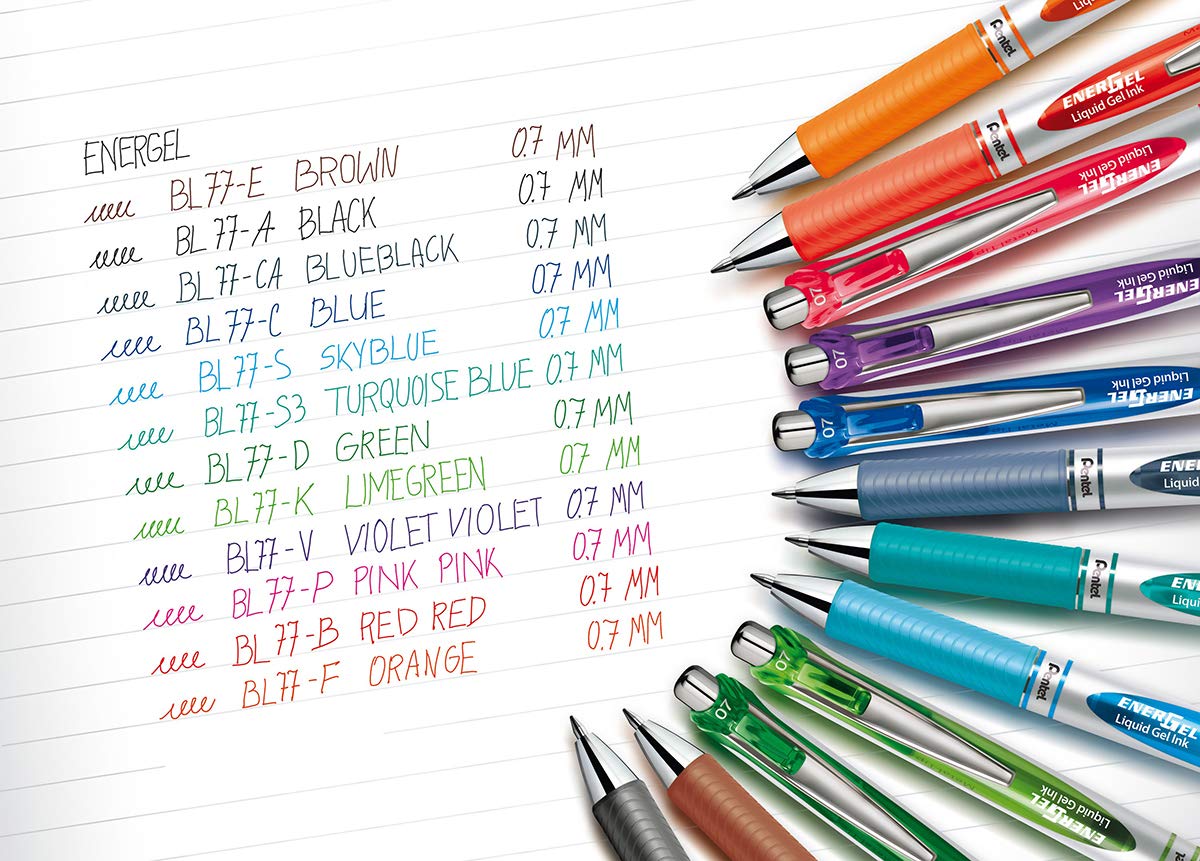 ENERGEL
BL77-E BROWN 0.7 MM
BL77-A BLACK 0.7 MM
BL77-CA BLUEBLACK 0.7 MM
BL77-C BLUE 0.7 MM
BL77-S SKYBLUE 0.7 MM
BL77-S3 TURQUOISE BLUE 0.7 MM
BL77-D GREEN 0.7 MM
BL77-K LIMEGREEN 0.7 MM
BL77-V VIOLET VIOLET 0.7 MM
BL77-P PINK PINK 0.7 MM
BL77-B RED RED 0.7 MM
BL77-F ORANGE 0.7 MM
Pentel
Pentel
ENERGEL
Liquid Gel Ink
07
Metal Tip
ENERGEL
Liquid Gel Ink
07
ENERGEL
Liquid Gel Ink
07
ENERGEL
Liquid Gel Ink
Pentel
ENE
Liquid
Pentel
ENE
Liqui
Pentel
ENERGEL
Liquid Gel Ink
07
ENERGEL
Liquid Gel Ink
07